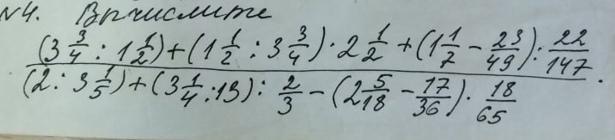 №4. Вычислите
(3 3/4 : 1 1/2) + (1 1/2 : 3 3/4) · 2 1/2 + (1 1/7 − 23/49) : 22/147
(2 : 3 1/5) + (3 1/4 : 13) : 2/3 − (2 5/18 − 17/36) · 18/65 .